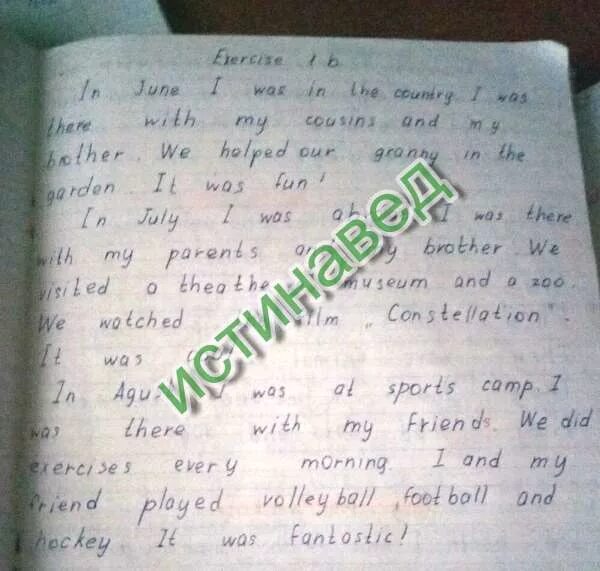 Exercise 1 b
In June I was in the country I was
there with my cousins and my
brother. We helped our granny in the
garden. It was fun!
In July I was I was there
with my parents brother. We
visited a museum and a zoo.
We watched film „Constellation".
It was
In was at sports camp. I
was there with my friends. We did
exercises every morning. I and my
friend played volleyball, football and
hockey. It was fantastic!
ИСТИНАВЕД